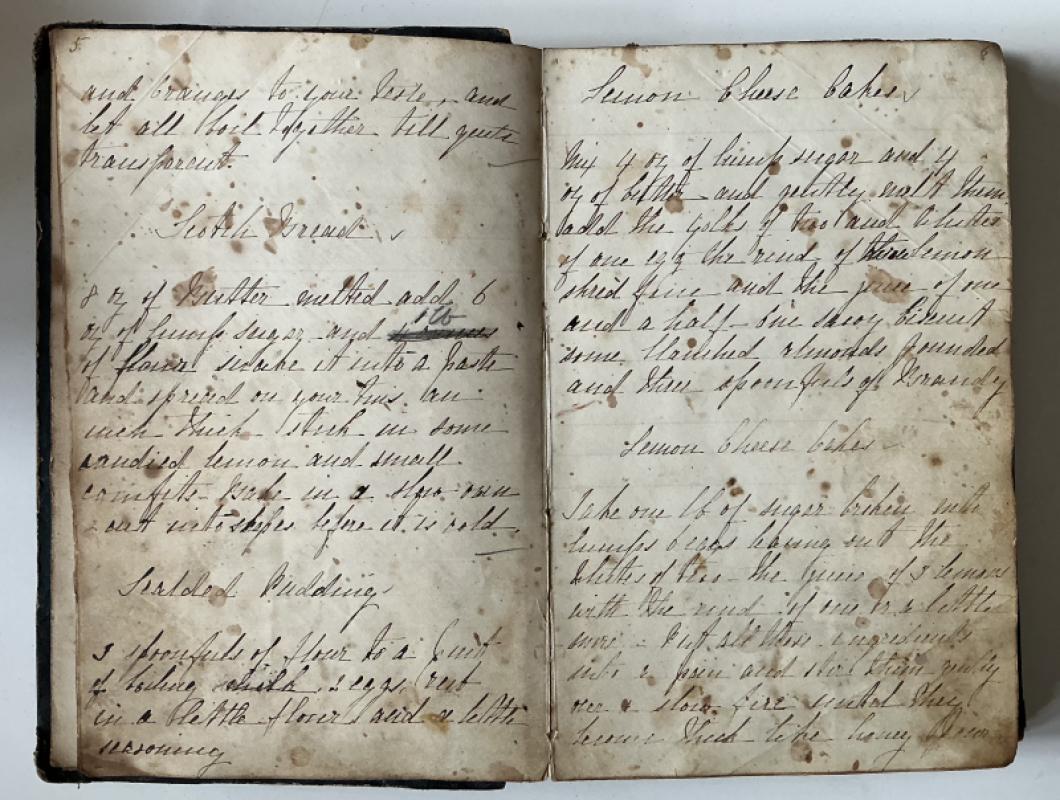 5
and oranges to your taste, and
let all boil together till quite
transparent
Scotch Bread
8 oz of Butter melted add 6
oz of lump sugar and 1 lb
of flour make it into a paste
and spread on your tins an
inch thick stick in some
candied lemon and small
comfits bake in a slow oven
cut into shapes before it is cold
Scalded Puddings
3 spoonfuls of flour to a pint
of boiling milk, 2 eggs, put
in a little flour and a little
seasoning
6
Lemon Cheese Cakes
Mix 4 oz of lump sugar and 4
oz of butter and gently melt them
add the yolks of two and white
of one egg the rind of three lemon
shred fine and the juice of one
and a half - one savoy biscuit
some blanched almonds pounded
and three spoonfuls of Brandy
Lemon Cheese Cakes
Take one lb of sugar broken into
lumps 6 eggs leaving out the
whites of two - the juice of 3 lemons
with the rind of one or a little
more - Put all these ingredients
into a pan and stir them gently
over a slow fire until they
become thick like honey